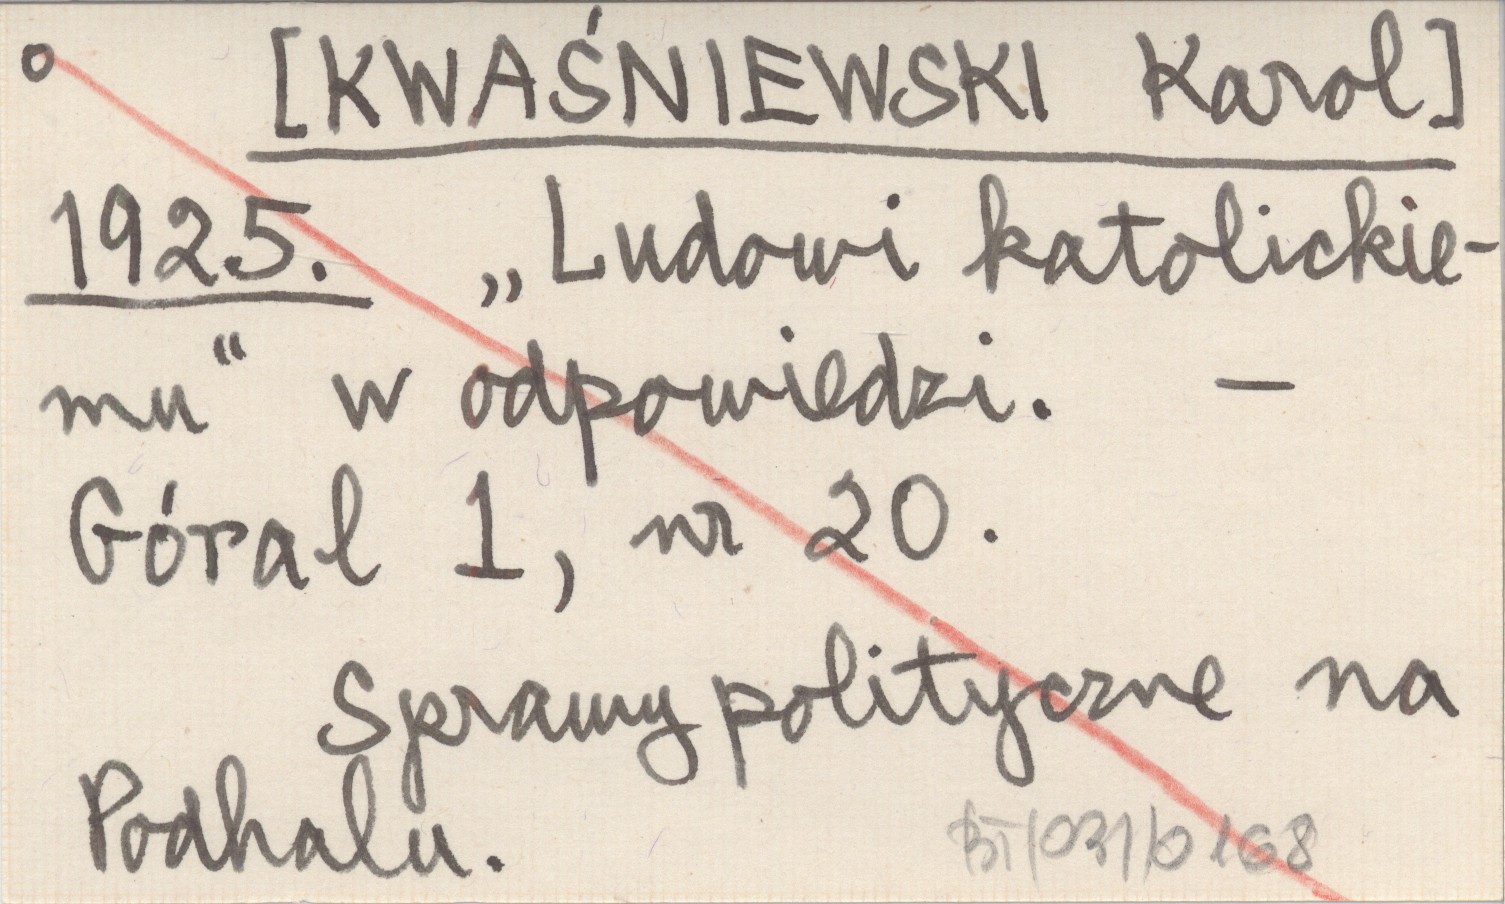 [KWAŚNIEWSKI Karol]
1925. „Ludowi katolickie-
mu“ w odpowiedzi. —
Góral 1, nr 20.
Sprawy polityczne na
Podhalu.
BT/031/0168